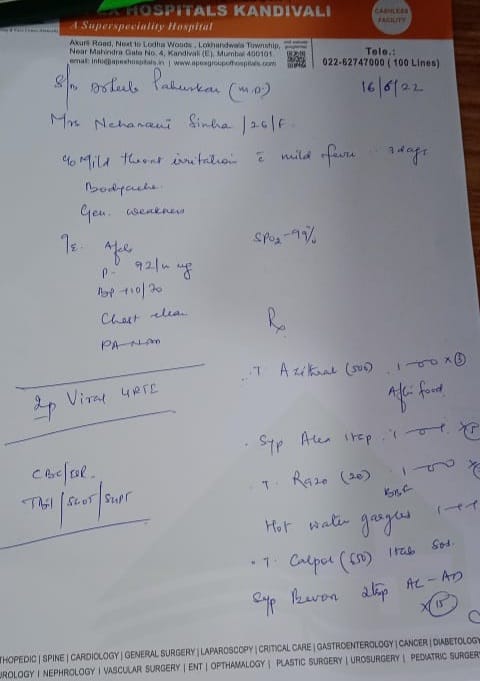 HOSPITALS KANDIVALI
A Superspeciality Hospital
CASHLESS FACILITY
Akurli Road, Next to Lodha Woods, Lokhandwala Township,
Near Mahindra Gate No. 4, Kandivali (E), Mumbai 400101.
email: info@apexhospitals.in | www.apexgroupofhospitals.com
Tele.:
022-62747000 ( 100 Lines)
16/6/22
(M.D.)
Mrs Sinha / 26/F
c/o Mild throat irritation c mild fever 3 days
Bodyache
Gen. weakness
Afeb SPO2 - 99%
P- 92/m
BP 110/70
Chest clear
PA-NAD
Rx
T. Azithral (500) 1-0-0 x 3
After food
Viral URTI
Syp Alex 1 tsp
CBC/ESR
SGOT/SGPT
T. Razo (20) 1-0-0
BBF
Hot water gargles
T. Calpol (650) 1 tab sos
Syp 2tsp x 15
THOPEDIC | SPINE | CARDIOLOGY | GENERAL SURGERY | LAPAROSCOPY | CRITICAL CARE | GASTROENTEROLOGY | CANCER | DIABETOLOGY
UROLOGY | NEPHROLOGY | VASCULAR SURGERY | ENT | OPTHAMALOGY | PLASTIC SURGERY | UROSURGERY | PEDIATRIC SURGER